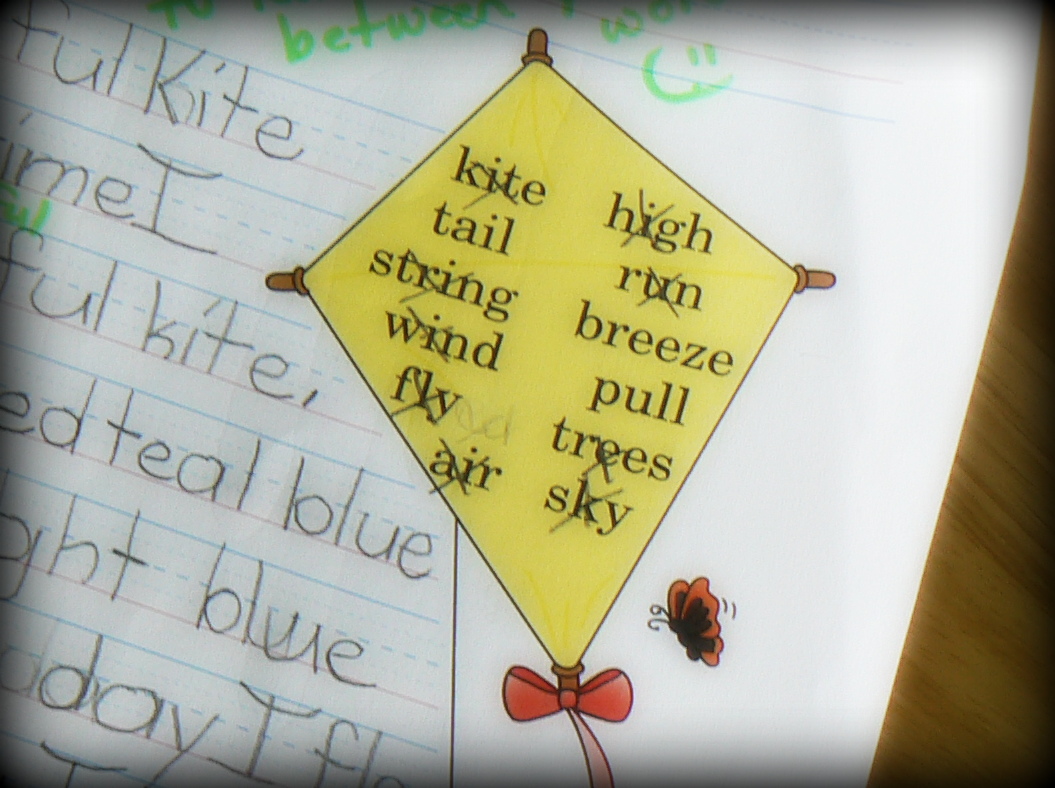 between
ful Kite
time I
ful
ful kite,
ed teal blue
ght blue
day I fl
kite
tail
string
wind
fly
air
high
run
breeze
pull
trees
sky